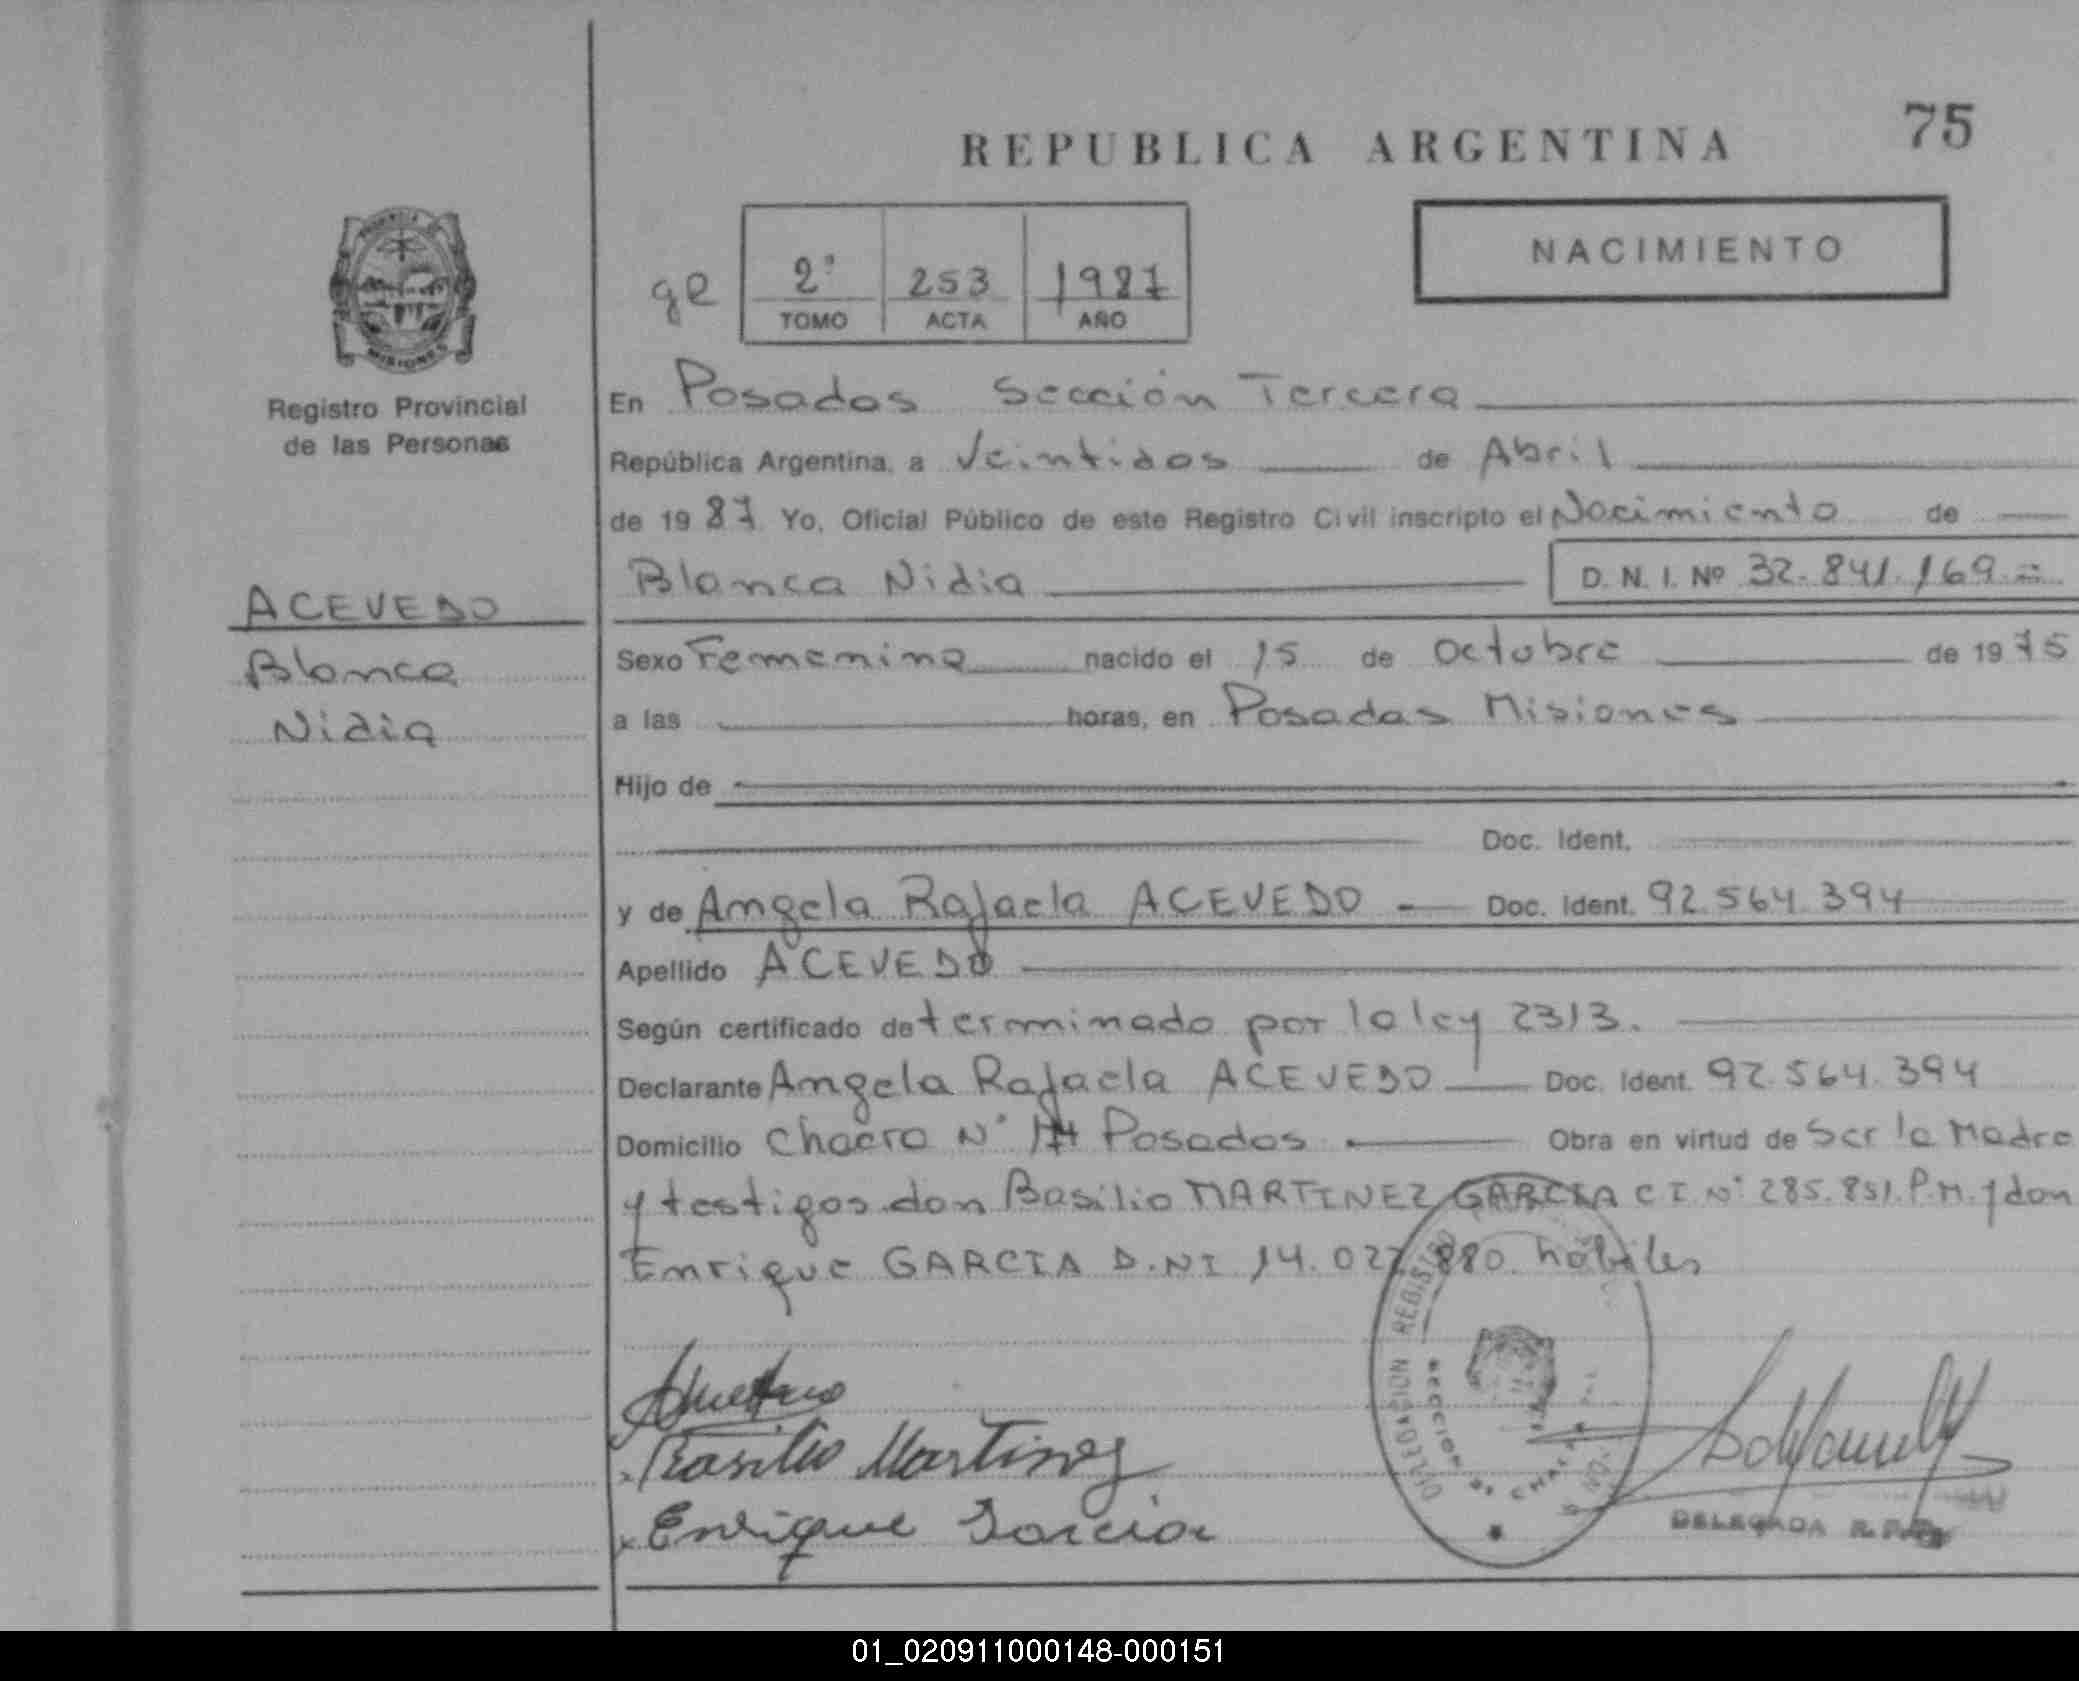 REPUBLICA ARGENTINA
75
NACIMIENTO
ge
2º 253 1987
TOMO ACTA AÑO
MISIONES
Registro Provincial
de las Personas
ACEVEDO
Blanca
Nidia
En Posadas Sección Tercera
República Argentina, a Veintidos de Abril
de 1987 Yo, Oficial Público de este Registro Civil inscripto el Nacimiento de
Blanca Nidia D. N. I. Nº 32.841.169
Sexo Femenino nacido el 15 de Octubre de 1975
a las horas, en Posadas Misiones
Hijo de
Doc. Ident.
y de Angela Rafaela ACEVEDO Doc. Ident. 92.564.394
Apellido ACEVEDO
Según certificado determinado por la ley 2313.
Declarante Angela Rafaela ACEVEDO Doc. Ident. 92.564.394
Domicilio Chacra Nº Posadas Obra en virtud de Ser la Madre
y testigos don Basilio MARTINEZ GARCIA C I Nº 285.851. P.M. y don
Enrique GARCIA D.NI 14.027.880. hábiles
Basilio Martinez
Enrique Garcia
DELEGACION REGISTRO
SECCION
DELEGADA
01_020911000148-000151